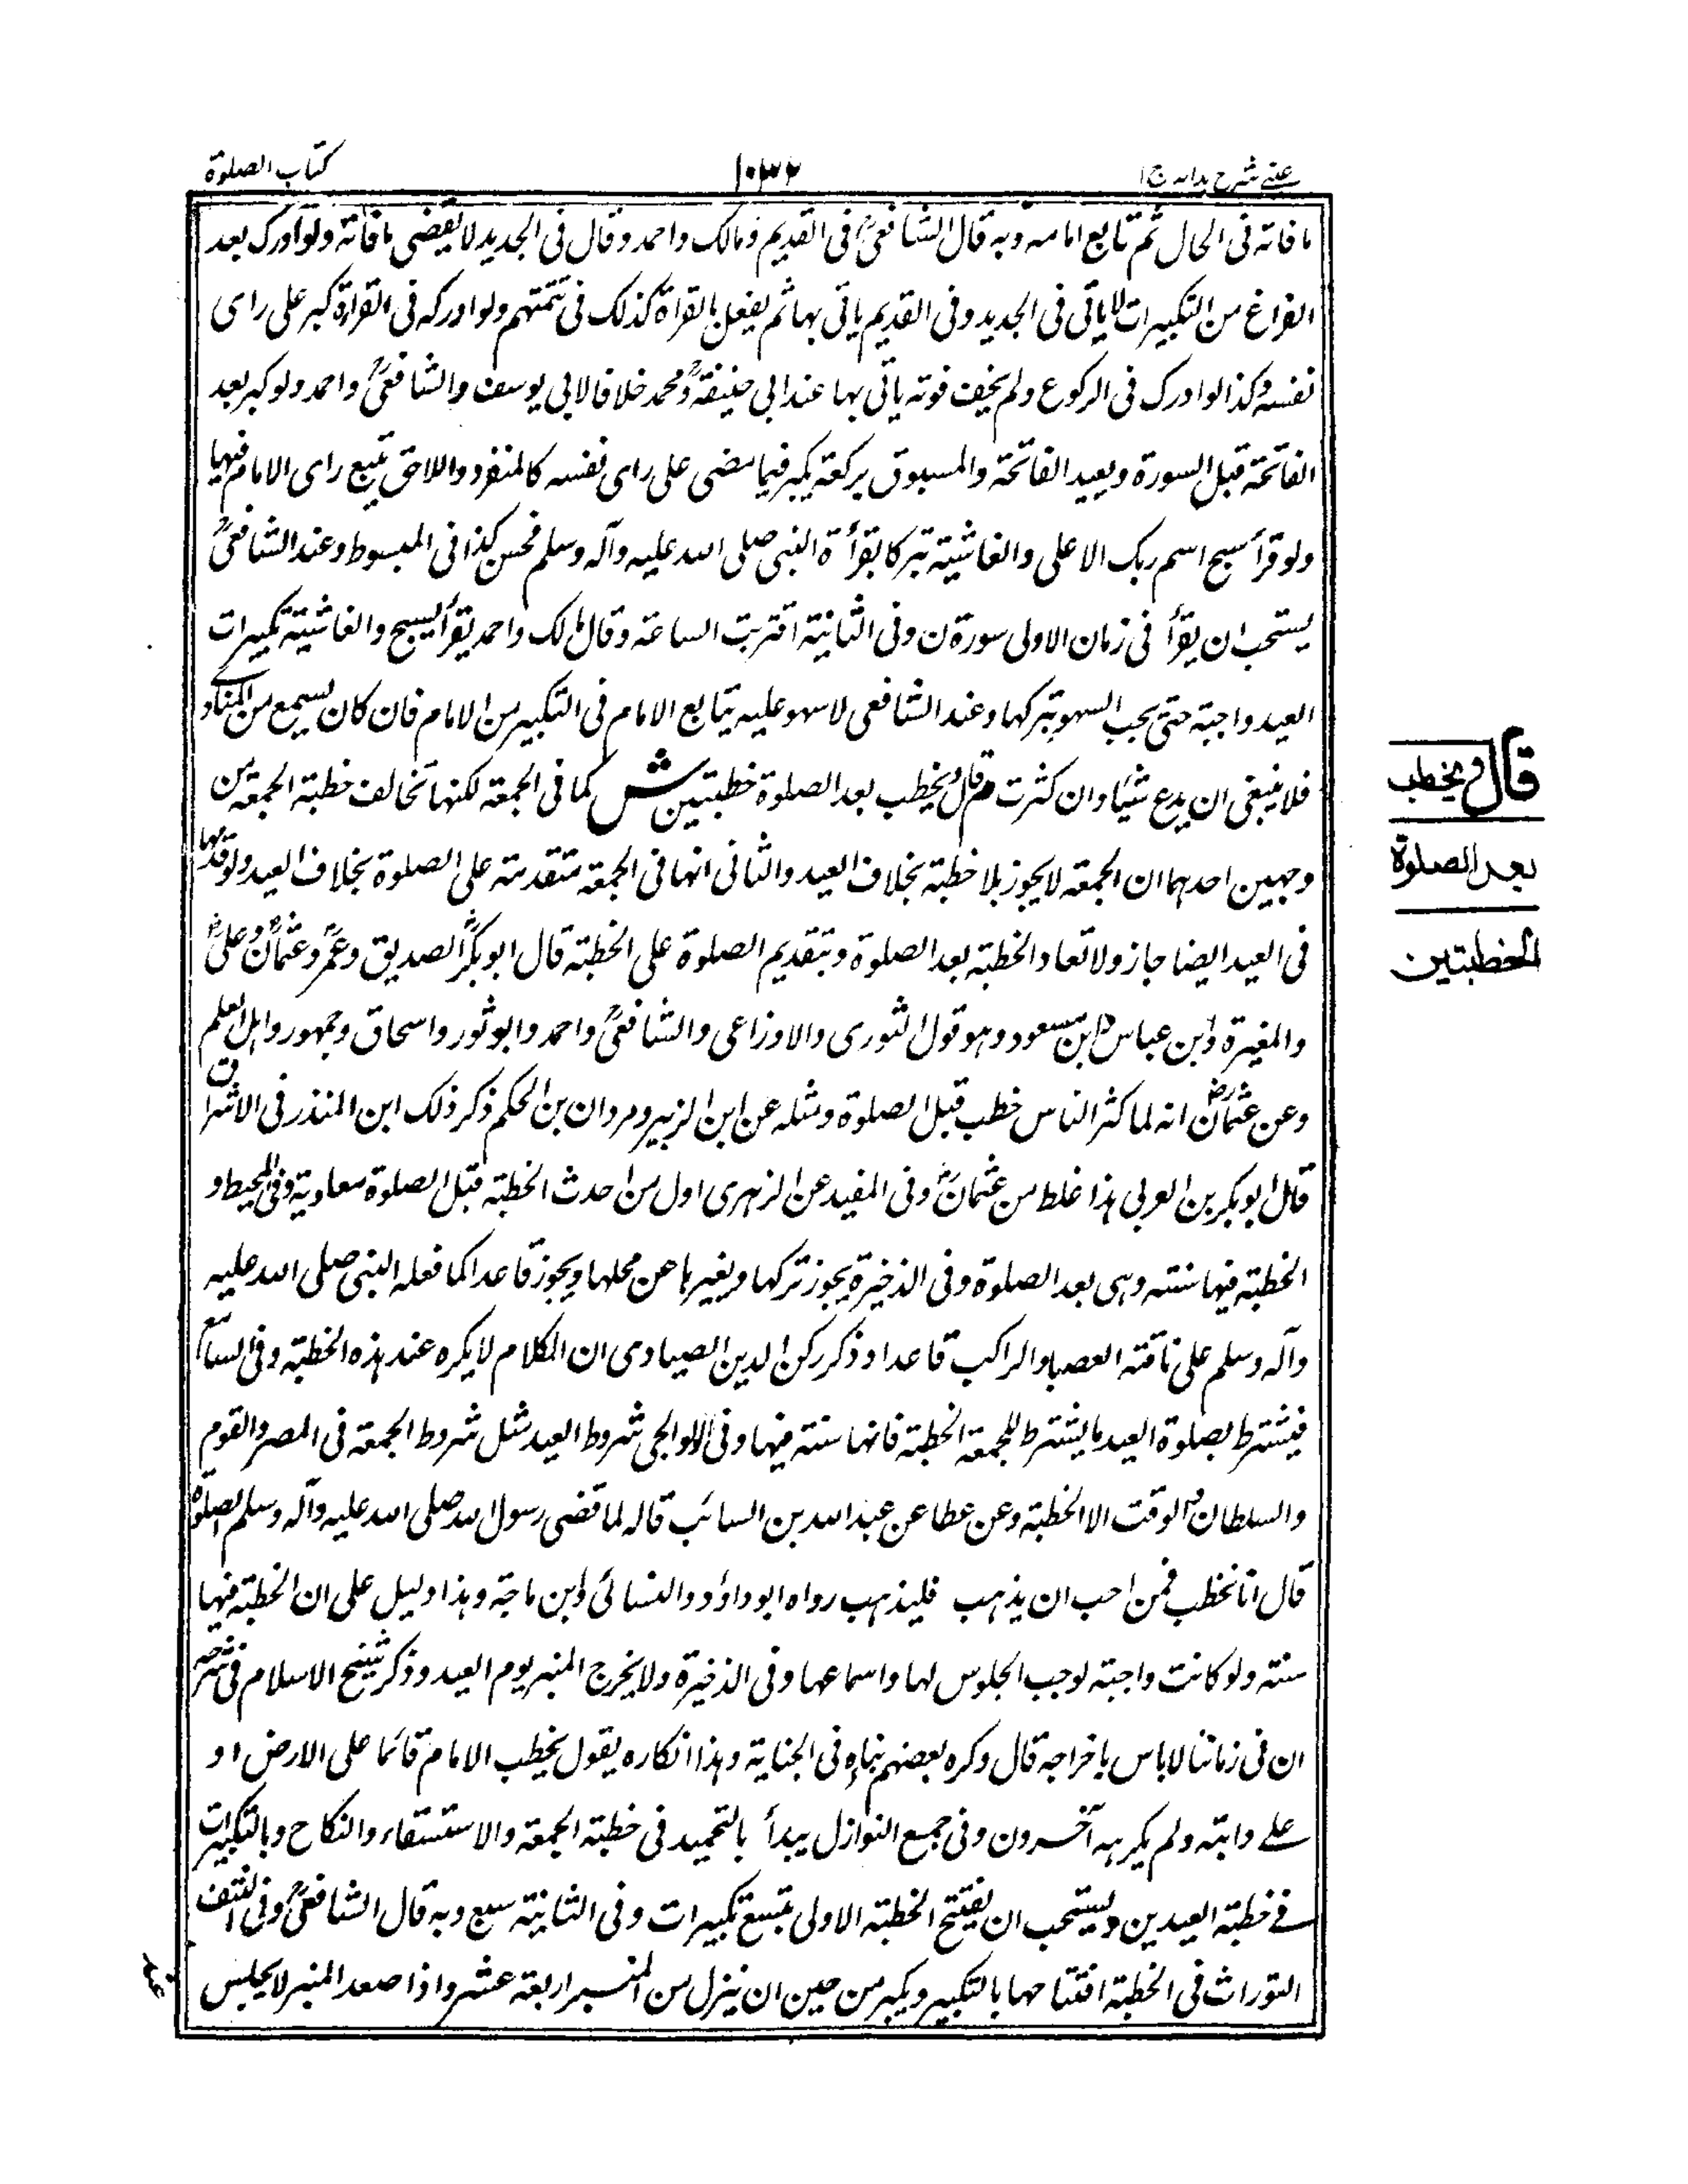 عینے شرح ہدایہ ج ۱
۱۰۳۲
کتاب الصلوة
ما فاته فی الحال ثم تابع امامه وبه قال الشافعیؒ فی القدیم ومالک واحمد وقال فی الجدید لا یقضی ما فاته ولو ادرک بعد
الفراغ من التکبیرات لا یاتی فی الجدید وفی القدیم یاتی بها ثم یفعل بالقراة کذلک فی تتمتهم ولو ادرکه فی القراءة کبر علی رای
نفسه وکذا لو ادرک فی الرکوع ولم یخف فوته یاتی بها عند ابی حنیفةؒ ومحمد خلافا لابی یوسف والشافعیؒ واحمد ولو کبر بعد
الفاتحة قبل السورة ویعید الفاتحة والمسبوق برکعة یکبر فیما مضی علی رای نفسه کالمنفرد واللاحق یتبع رای الامام فیها
ولو قرأ سبح اسم ربک الاعلی والغاشیة تبرکا بقرأة النبی صلی الله علیه وآله وسلم فحسن کذا فی المبسوط وعند الشافعیؒ
یستحب ان یقرأ فی زمان الاولی سورة ن وفی الثانیة اقتربت الساعة وقال مالک واحمد یقرأ بسبح والغاشیة تکبیرات
العید واجبة حتی یجب السهو بترکها وعند الشافعی لا سهو علیه یتابع الامام فی التکبیر من الامام فان کان یسمع من المناد
فلا ینبغی ان یدع شیئا وان کثرت م قال ویخطب بعد الصلوة خطبتین ش کما فی الجمعة لکنها تخالف خطبة الجمعة من
وجهین احدهما ان الجمعة لا یجوز بلا خطبة بخلاف العید والثانی انها فی الجمعة متقدمة علی الصلوة بخلاف العید ولو قدمها
فی العید ایضا جاز ولا تعاد الخطبة بعد الصلوة وبتقدیم الصلوة علی الخطبة قال ابو بکرؓ الصدیق وعمرؓ وعثمانؓ وعلیؓ
والمغیرة وابن عباس وابن مسعود وهو قول الثوری والاوزاعی والشافعیؒ واحمد وابو ثور واسحاق وجمهور واهل العلم
وعن عثمانؓ انه لما کثر الناس خطب قبل الصلوة ومثله عن ابن الزبیر ومردان بن الحکم ذکر ذلک ابن المنذر فی الاشراق
قال ابو بکر بن العربی هذا غلط من عثمانؓ وفی المفید عن الزهری اول من احدث الخطبة قبل الصلوة معاویة وفی المحیط و
الخطبة فیها سنة وهی بعد الصلوة وفی الذخیرة یجوز ترکها وبغیرها عن محلها ویجوز قاعدا کما فعله النبی صلی الله علیه
وآله وسلم علی ناقته العصبا والراکب قاعدا وذکر رکن الدین الصیادی ان الکلام لا یکره عند هذه الخطبة وفی السامع
فیشترط بصلوة العید ما یشترط للجمعة الخطبة فانها سنة فیها وفی الولوالجی شروط العید مثل شروط الجمعة فی المصر والقوم
والسلطان والوقت الا الخطبة وعن عطا عن عبد الله بن السائب قاله لما قضی رسول الله صلی الله علیه وآله وسلم الصلوة
قال انا نخطب فمن احب ان یذهب فلیذهب رواه ابو داؤد والنسائی وابن ماجة وهذا دلیل علی ان الخطبة فیها
سنة ولو کانت واجبة لوجب الجلوس لها واسماعها وفی الذخیرة ولا یخرج المنبر یوم العید وذکر شیخ الاسلام فی شرحه
ان فی زماننا لاباس باخراجه قال وکره بعضهم بناءه فی الجنایة وهذا انکاره یقول یخطب الامام قائما علی الارض او
علے دابته ولم یکرهه آخرون وفی جمع النوازل یبدأ بالتحمید فی خطبة الجمعة والاستسقاء والنکاح وبالتکبیرات
فے خطبة العیدین ویستحب ان یفتتح الخطبة الاولی بتسع تکبیرات وفی الثانیة سبع وبه قال الشافعیؒ وفی النتف
التوراث فی الخطبة افتتاحها بالتکبیر ویکبر من حین ان ینزل من المنبر اربعة عشر واذا صعد المنبر لا یجلس
قال ویخطب
بعد الصلوة
الخطبتین